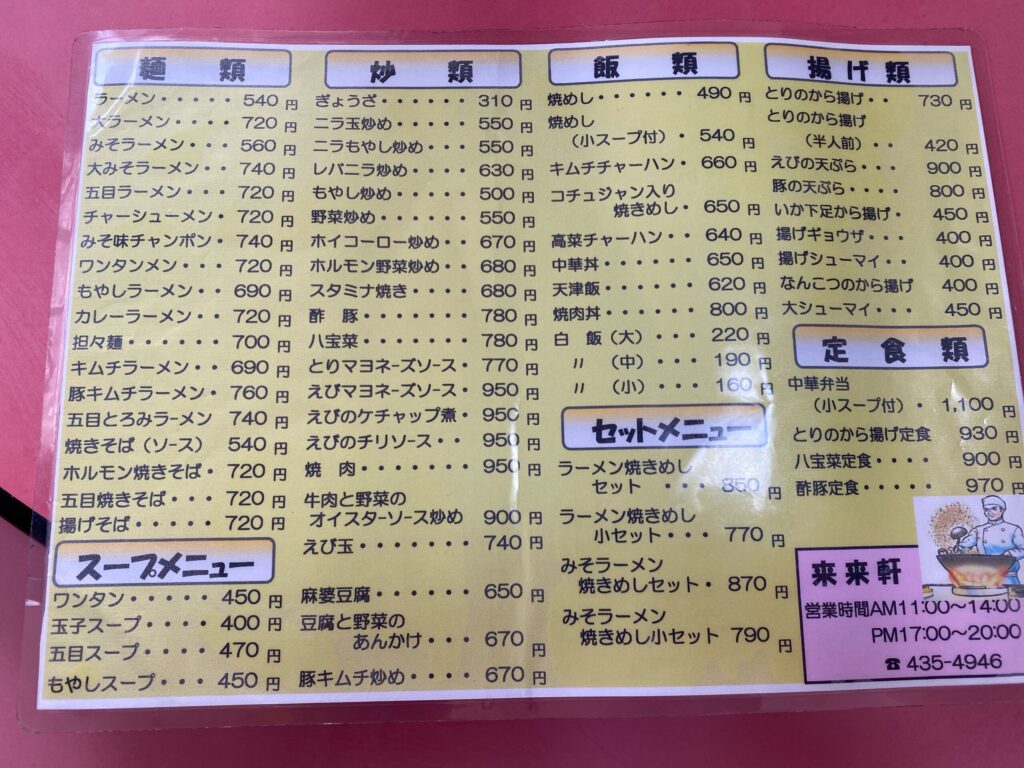 麺類
ラーメン・・・・・ 540 円
大ラーメン・・・・ 720 円
みそラーメン・・・ 560 円
大みそラーメン・・ 740 円
五目ラーメン・・・ 720 円
チャーシューメン・ 720 円
みそ味チャンポン・ 740 円
ワンタンメン・・・ 720 円
もやしラーメン・・ 690 円
カレーラーメン・・ 720 円
担々麺・・・・・・ 700 円
キムチラーメン・・ 690 円
豚キムチラーメン・ 760 円
五目とろみラーメン 740 円
焼きそば(ソース) 540 円
ホルモン焼きそば・ 720 円
五目焼きそば・・・ 720 円
揚げそば・・・・・ 720 円
スープメニュー
ワンタン・・・・・ 450 円
玉子スープ・・・・ 400 円
五目スープ・・・・ 470 円
もやしスープ・・・ 450 円
炒類
ぎょうざ・・・・・・ 310 円
ニラ玉炒め・・・・・ 550 円
ニラもやし炒め・・・ 550 円
レバニラ炒め・・・・ 630 円
もやし炒め・・・・・ 500 円
野菜炒め・・・・・・ 550 円
ホイコーロー炒め・・ 670 円
ホルモン野菜炒め・・ 680 円
スタミナ焼き・・・・ 680 円
酢豚・・・・・・・ 780 円
八宝菜・・・・・・・ 780 円
とりマヨネーズソース・ 770 円
えびマヨネーズソース・ 950 円
えびのケチャップ煮・ 950 円
えびのチリソース・・ 950 円
焼肉・・・・・・・ 950 円
牛肉と野菜の
オイスターソース炒め 900 円
えび玉・・・・・・・ 740 円
麻婆豆腐・・・・・・ 650 円
豆腐と野菜の
あんかけ・・・ 670 円
豚キムチ炒め・・・・ 670 円
飯類
焼めし・・・・・・ 490 円
焼めし
(小スープ付)・ 540 円
キムチチャーハン・ 660 円
コチュジャン入り
焼きめし・ 650 円
高菜チャーハン・・ 640 円
中華丼・・・・・・ 650 円
天津飯・・・・・・ 620 円
焼肉丼・・・・・・ 800 円
白飯(大)・・・ 220 円
〃(中)・・・ 190 円
〃(小)・・・ 160 円
セットメニュー
ラーメン焼きめし
セット・・・・ 850 円
ラーメン焼きめし
小セット・・・ 770 円
みそラーメン
焼きめしセット・ 870 円
みそラーメン
焼きめし小セット 790 円
揚げ類
とりのから揚げ・・ 730 円
とりのから揚げ
(半人前)・・ 420 円
えびの天ぷら・・・ 900 円
豚の天ぷら・・・・ 800 円
いか下足から揚げ・ 450 円
揚げギョウザ・・・ 400 円
揚げシューマイ・・ 400 円
なんこつのから揚げ 400 円
大シューマイ・・・ 450 円
定食類
中華弁当
(小スープ付)・ 1,100 円
とりのから揚げ定食 930 円
八宝菜定食・・・・・ 900 円
酢豚定食・・・・・ 970 円
来来軒
営業時間AM11:00～14:00
PM17:00～20:00
☎435-4946